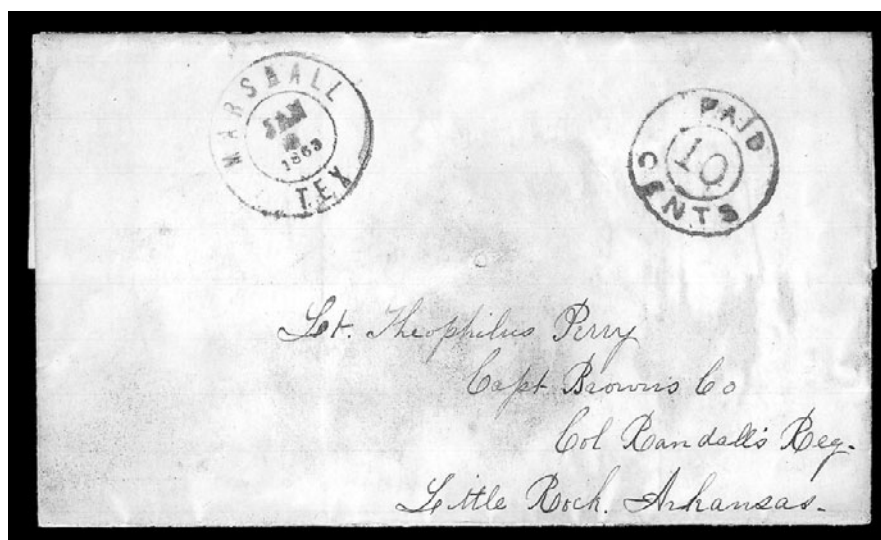 MARSHALL
JAN
1863
TEX
PAID
10
CENTS
Lt. Theophilus Perry
Capt Browns Co
Col Randall's Reg.
Little Rock. Arkansas.